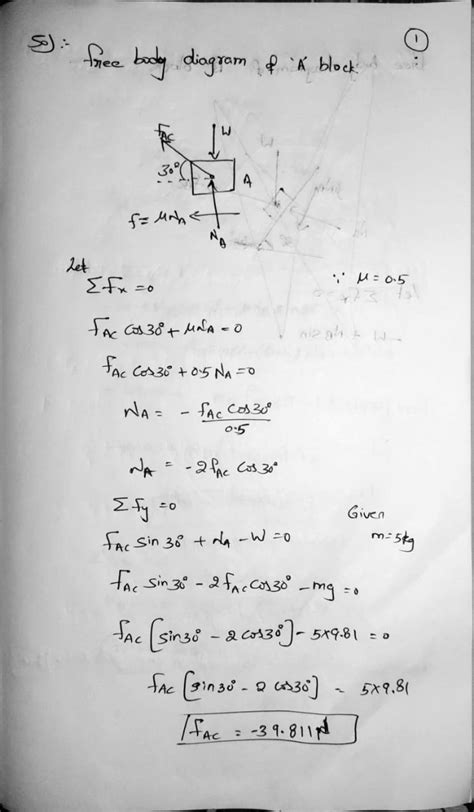 Sol :-
①
free body diagram of 'A' block :
F_AC
W
30°
A
f = μN_A
N_A
Let
Σfx = 0
∵ μ = 0.5
f_AC cos30° + μN_A = 0
f_AC cos30° + 0.5 N_A = 0
N_A = - f_AC cos30° / 0.5
N_A = -2 f_AC cos30°
Σfy = 0
Given
f_AC sin 30° + N_A - W = 0
m = 5kg
f_AC sin30° - 2 f_AC cos30° - mg = 0
f_AC [sin30° - 2 cos30°] - 5×9.81 = 0
f_AC [sin30° - 2 cos30°] = 5×9.81
f_AC = -39.811N